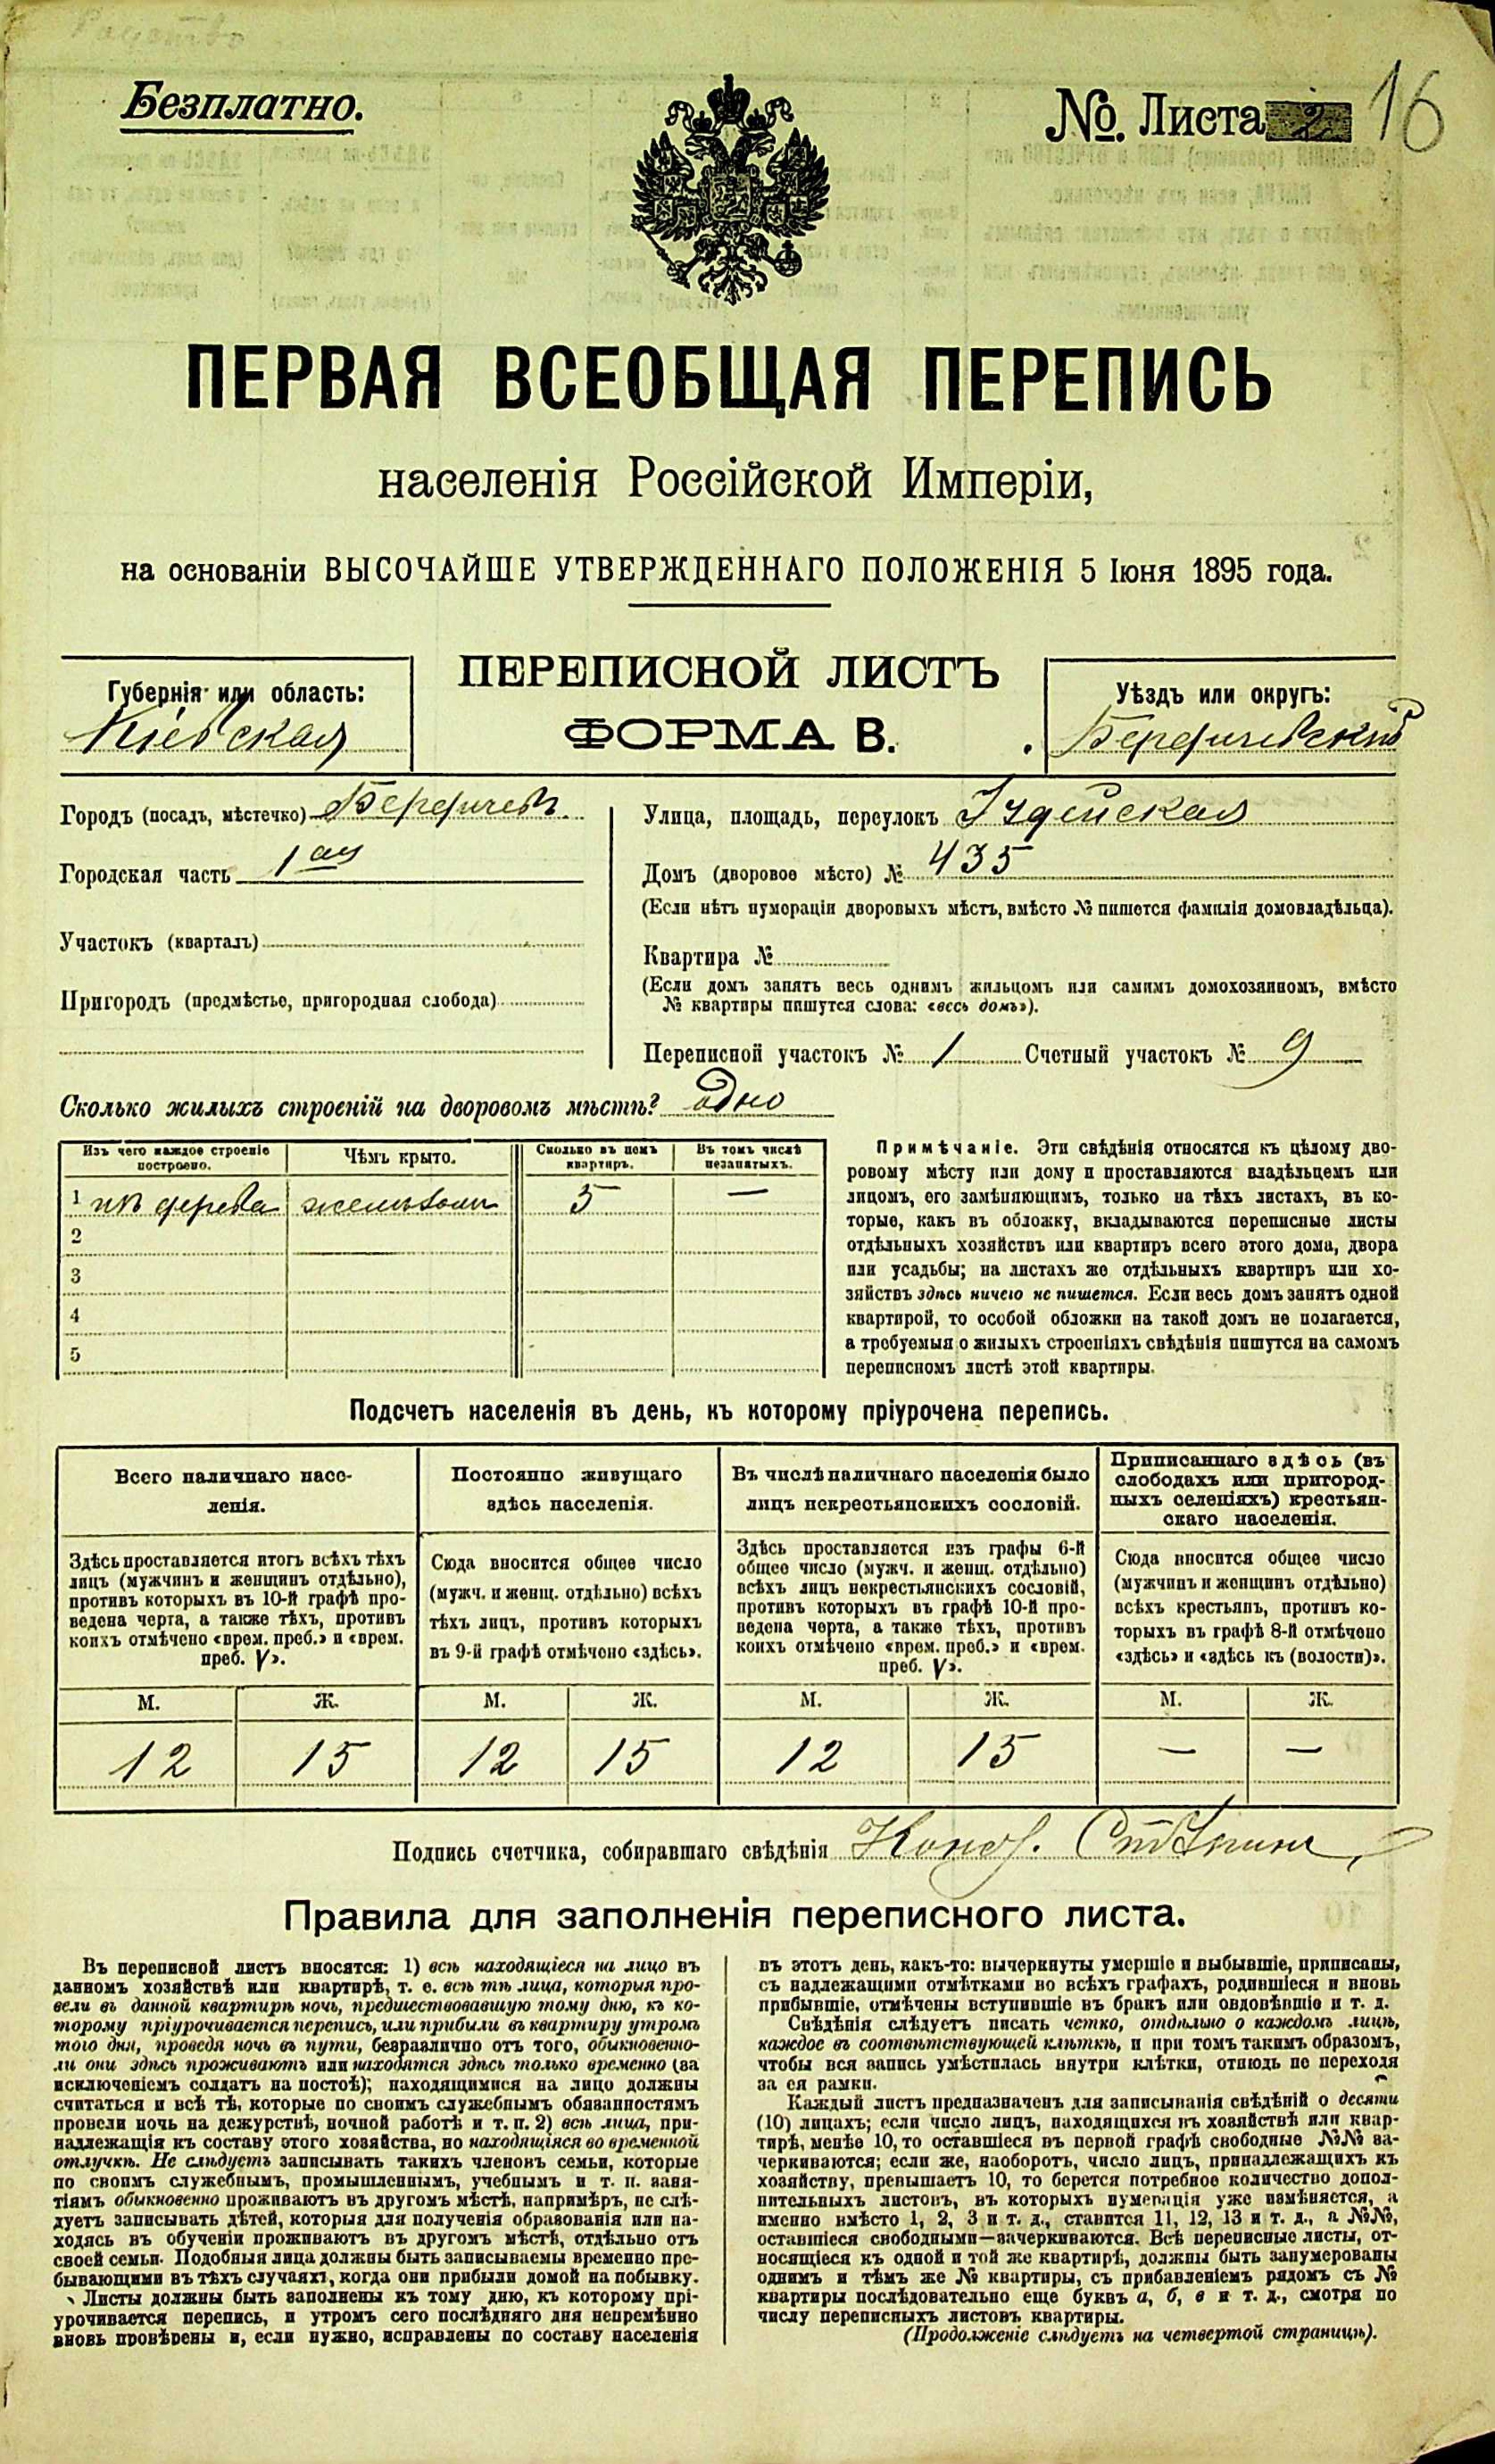 Безплатно.
№. Листа 2 16
ПЕРВАЯ ВСЕОБЩАЯ ПЕРЕПИСЬ
населенія Россійской Имперіи,
на основаніи ВЫСОЧАЙШЕ УТВЕРЖДЕННАГО ПОЛОЖЕНІЯ 5 Іюня 1895 года.
ПЕРЕПИСНОЙ ЛИСТЪ
ФОРМА В.
Губернія или область:
Кіевская
Уѣздъ или округъ:
Бердичевскій
Городъ (посадъ, мѣстечко) Бердичевъ
Городская часть 1ая
Участокъ (кварталъ)
Пригородъ (предмѣстье, пригородная слобода)
Улица, площадь, переулокъ Іудейская
Домъ (дворовое мѣсто) № 435
(Если нѣтъ нумераціи дворовыхъ мѣстъ, вмѣсто № пишется фамилія домовладѣльца).
Квартира №
(Если домъ занятъ весь однимъ жильцомъ или самимъ домохозяиномъ, вмѣсто
№ квартиры пишутся слова: «весь домъ»).
Переписной участокъ № 1 Счетный участокъ № 9
Сколько жилыхъ строеній на дворовомъ мѣстѣ? одно
Изъ чего каждое строеніе
построено.
Чѣмъ крыто.
Сколько въ немъ
квартиръ.
Въ томъ числѣ
незанятыхъ.
1 изъ дерева желѣзомъ 5 —
2
3
4
5
Примѣчаніе. Эти свѣдѣнія относятся къ цѣлому дво-
ровому мѣсту или дому и проставляются владѣльцемъ или
лицомъ, его замѣняющимъ, только на тѣхъ листахъ, въ ко-
торые, какъ въ обложку, вкладываются переписные листы
отдѣльныхъ хозяйствъ или квартиръ всего этого дома, двора
или усадьбы; на листахъ же отдѣльныхъ квартиръ или хо-
зяйствъ здѣсь ничего не пишется. Если весь домъ занятъ одной
квартирой, то особой обложки на такой домъ не полагается,
а требуемыя о жилыхъ строеніяхъ свѣдѣнія пишутся на самомъ
переписномъ листѣ этой квартиры.
Подсчетъ населенія въ день, къ которому пріурочена перепись.
Всего наличнаго насе-
ленія.
Постоянно живущаго
здѣсь населенія.
Въ числѣ наличнаго населенія было
лицъ некрестьянскихъ сословій.
Приписаннаго здѣсь (въ
слободахъ или пригород-
ныхъ селеніяхъ) крестьян-
скаго населенія.
Здѣсь проставляется итогъ всѣхъ тѣхъ
лицъ (мужчинъ и женщинъ отдѣльно),
противъ которыхъ въ 10-й графѣ про-
ведена черта, а также тѣхъ, противъ
коихъ отмѣчено «врем. преб.» и «врем.
преб. V».
Сюда вносится общее число
(мужч. и женщ. отдѣльно) всѣхъ
тѣхъ лицъ, противъ которыхъ
въ 9-й графѣ отмѣчено «здѣсь».
Здѣсь проставляется изъ графы 6-й
общее число (мужч. и женщ. отдѣльно)
всѣхъ лицъ некрестьянскихъ сословій,
противъ которыхъ въ графѣ 10-й про-
ведена черта, а также тѣхъ, противъ
коихъ отмѣчено «врем. преб.» и «врем.
преб. V».
Сюда вносится общее число
(мужчинъ и женщинъ отдѣльно)
всѣхъ крестьянъ, противъ ко-
торыхъ въ графѣ 8-й отмѣчено
«здѣсь» и «здѣсь къ (волости)».
М. Ж. М. Ж. М. Ж. М. Ж.
12 15 12 15 12 15 — —
Подпись счетчика, собиравшаго свѣдѣнія
Правила для заполненія переписного листа.
Въ переписной листъ вносятся: 1) всѣ находящіеся на лицо въ
данномъ хозяйствѣ или квартирѣ, т. е. всѣ тѣ лица, которыя про-
вели въ данной квартирѣ ночь, предшествовавшую тому дню, къ ко-
торому пріурочивается перепись, или прибыли въ квартиру утромъ
того дня, проведя ночь въ пути, безразлично отъ того, обыкновенно-
ли они здѣсь проживаютъ или находятся здѣсь только временно (за
исключеніемъ солдатъ на постоѣ); находящимися на лицо должны
считаться и всѣ тѣ, которые по своимъ служебнымъ обязанностямъ
провели ночь на дежурствѣ, ночной работѣ и т. п. 2) всѣ лица, при-
надлежащія къ составу этого хозяйства, но находящіяся во временной
отлучкѣ. Не слѣдуетъ записывать такихъ членовъ семьи, которые
по своимъ служебнымъ, промышленнымъ, учебнымъ и т. п. заня-
тіямъ обыкновенно проживаютъ въ другомъ мѣстѣ, напримѣръ, не слѣ-
дуетъ записывать дѣтей, которыя для полученія образованія или на-
ходясь въ обученіи проживаютъ въ другомъ мѣстѣ, отдѣльно отъ
своей семьи. Подобныя лица должны быть записываемы временно пре-
бывающими въ тѣхъ случаяхъ, когда они прибыли домой на побывку.
Листы должны быть заполнены къ тому дню, къ которому прі-
урочивается перепись, и утромъ сего послѣдняго дня непремѣнно
вновь провѣрены и, если нужно, исправлены по составу населенія
въ этотъ день, какъ-то: вычеркнуты умершіе и выбывшіе, приписаны,
съ надлежащими отмѣтками во всѣхъ графахъ, родившіеся и вновь
прибывшіе, отмѣчены вступившіе въ бракъ или овдовѣвшіе и т. д.
Свѣдѣнія слѣдуетъ писать четко, отдѣльно о каждомъ лицѣ,
каждое въ соотвѣтствующей клѣткѣ, и при томъ такимъ образомъ,
чтобы вся запись умѣстилась внутри клѣтки, отнюдь не переходя
за ея рамки.
Каждый листъ предназначенъ для записыванія свѣдѣній о десяти
(10) лицахъ; если число лицъ, находящихся въ хозяйствѣ или квар-
тирѣ, менѣе 10, то оставшіеся въ первой графѣ свободные №№ за-
черкиваются; если же, наоборотъ, число лицъ, принадлежащихъ къ
хозяйству, превышаетъ 10, то берется потребное количество допол-
нительныхъ листовъ, въ которыхъ нумерація уже измѣняется, а
именно вмѣсто 1, 2, 3 и т. д., ставится 11, 12, 13 и т. д., а №№,
оставшіеся свободными—зачеркиваются. Всѣ переписные листы, от-
носящіеся къ одной и той же квартирѣ, должны быть занумерованы
однимъ и тѣмъ же № квартиры, съ прибавленіемъ рядомъ съ №
квартиры послѣдовательно еще буквъ а, б, в и т. д., смотря по
числу переписныхъ листовъ квартиры.
(Продолженіе слѣдуетъ на четвертой страницѣ).